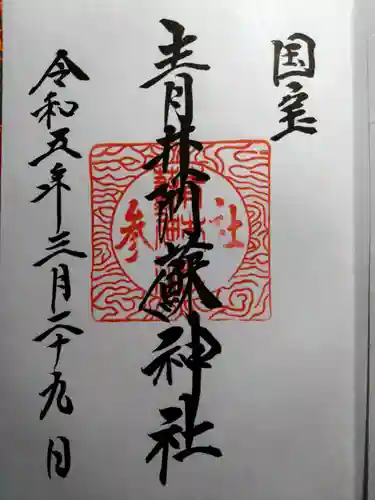 国宝
青井阿蘇神社
参社
令和五年三月二十九日